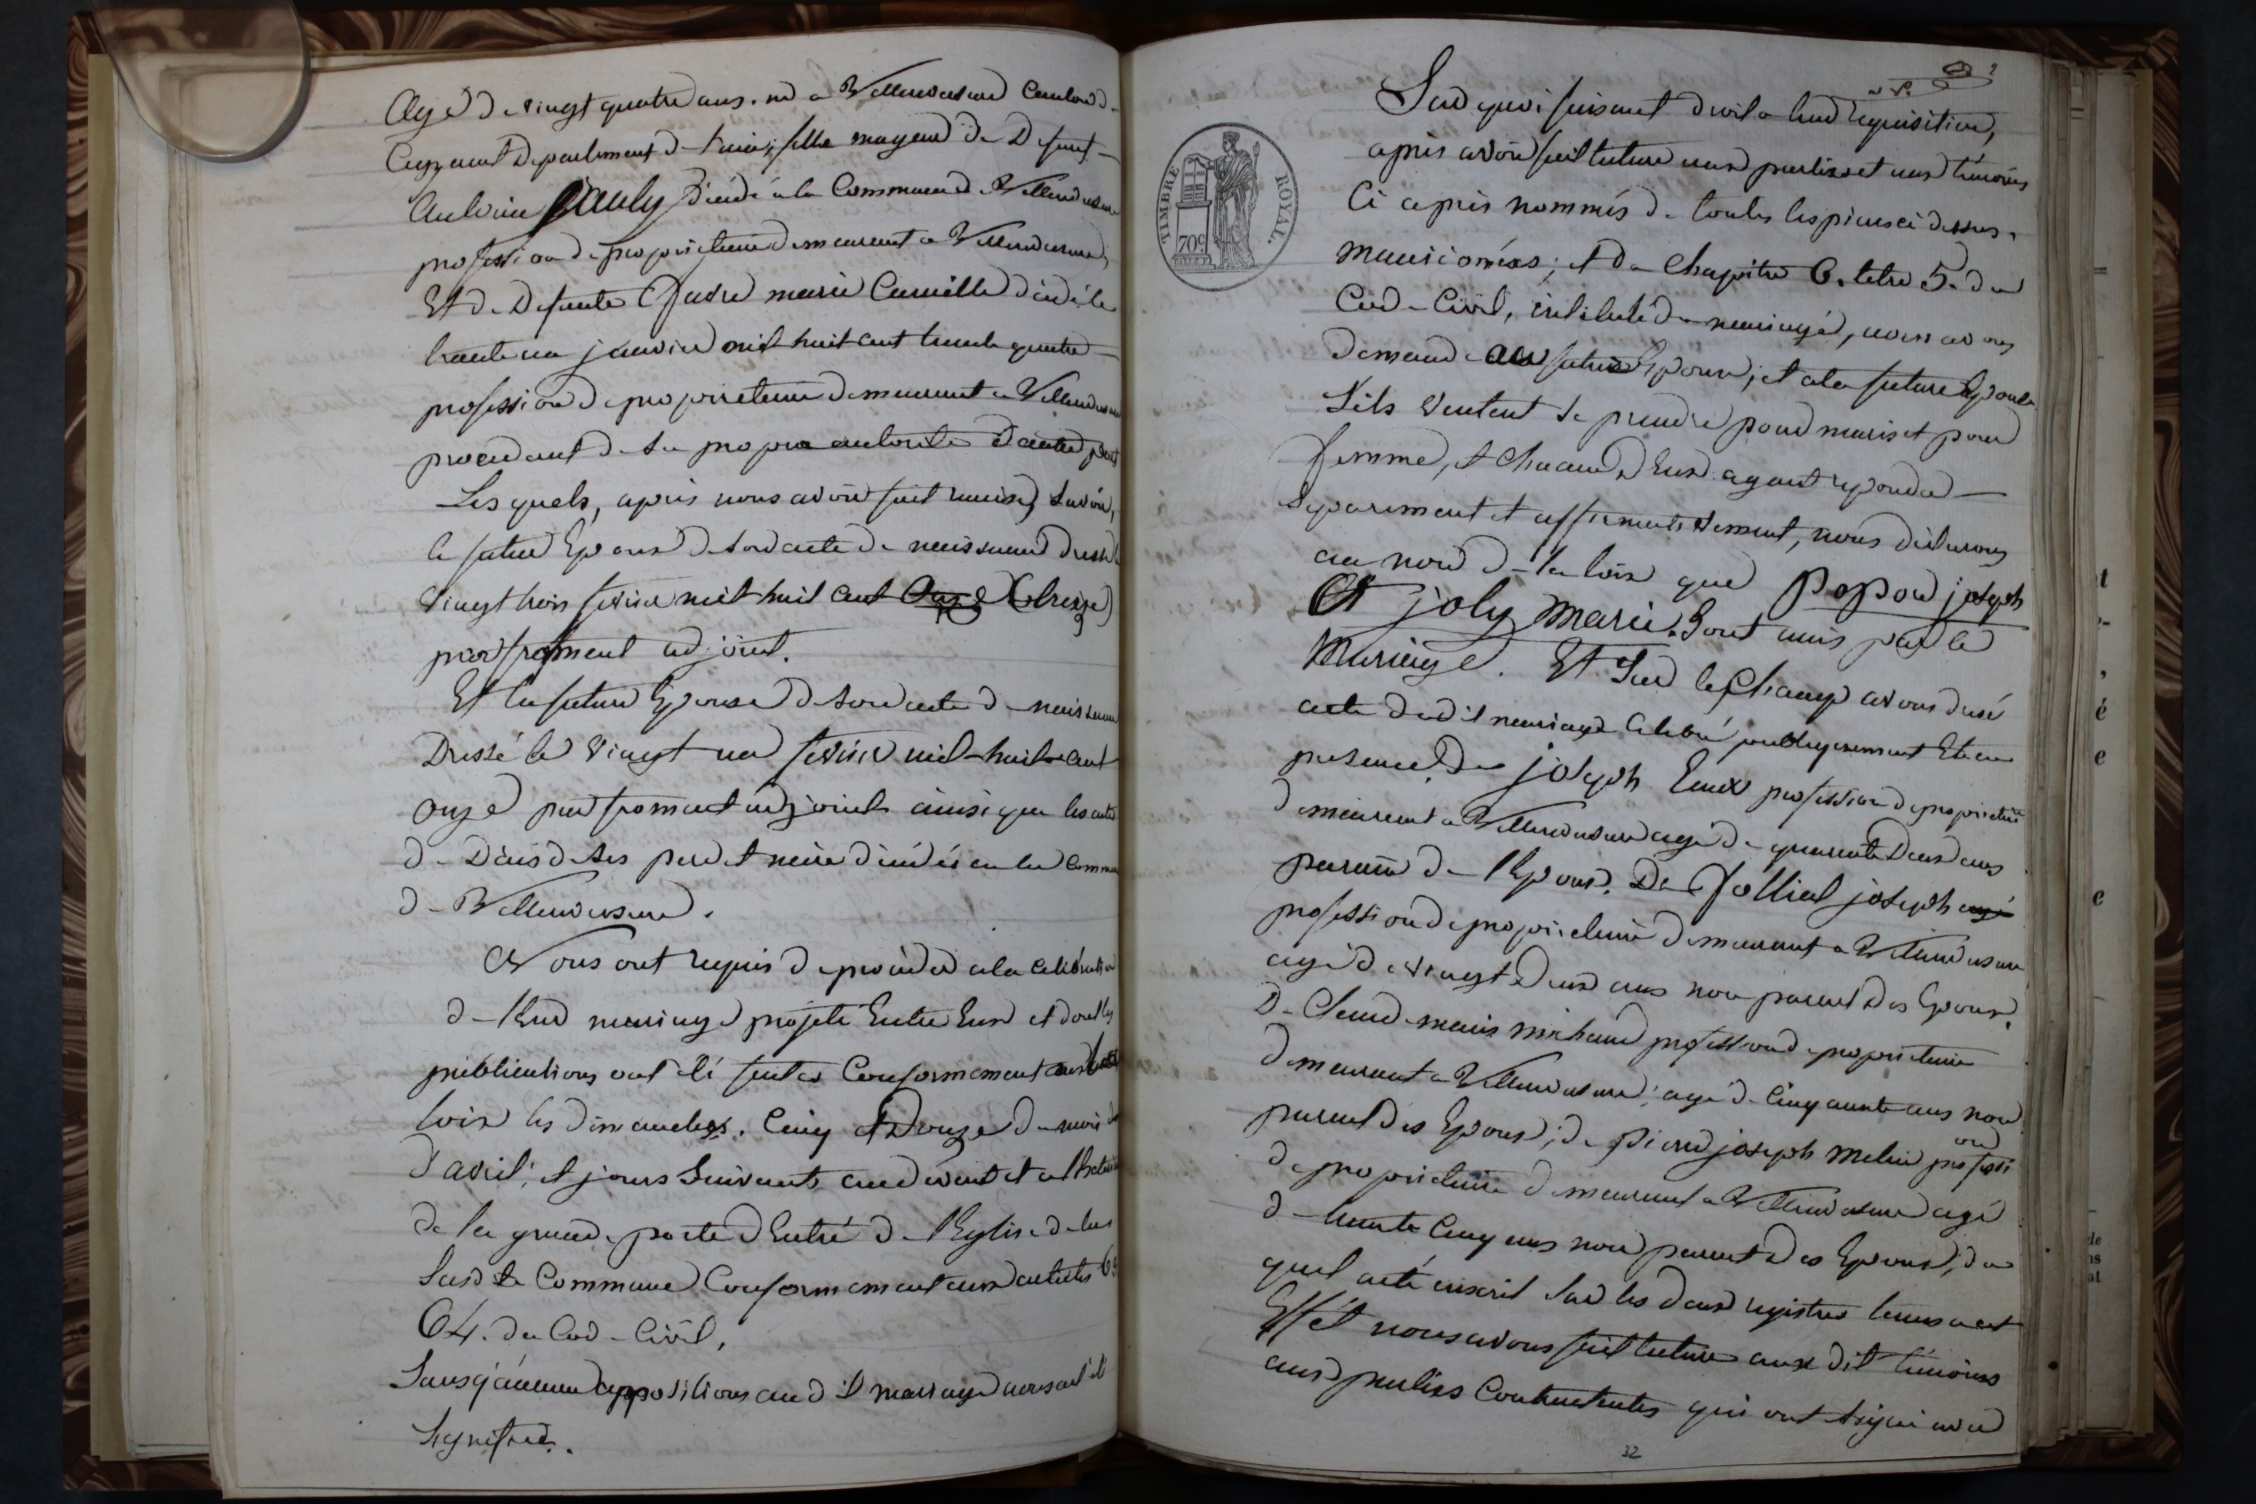 Agé de vingt quatre ans. né a Villereversure Canton de
Ceyzeriat Département de l'ain, fille mageure de Defunt
Antoine Jauly Décédé à la Commune de Villereversure
profession de propriétaire demeurant a Villereversure,
Et de Defunte marie Décédé le
trente un janvier mil huit cent trente quatre
profession de propriétaire demeurant a Villereversure
procedant de sa propre autorité d'autre part
Les quels, après nous avoir fait remise, savoir,
le futur Epoux de son acte de naissance dressé le
vingt trois fevrier mil huit cent onze (treize)
par froment adjoint.
Et la future Epouse de son acte de naissance
Dressé le vingt un fevrier mil huit cent
onze par froment adjoint ainsi que les actes
de Décès de ses pere et mere décédés en la Commune
de Villereversure.
Nous ont requis de procéder a la célébration
de leur mariage projeté Entre Eux et dont les
publications ont été faites Conformement aux
loix les dimanches. Cinq et Douze du mois
d'avril, et jours Suivants au devant et a l'
de la grande porte d'Entré de l'Eglise de la
Susdte Commune Conformement aux articles 63
64. du Code Civil,
Sans qu'aucune oppositions audit mariage nous ait été
Signifiée.
Sur quoi faisant droit a leur requisition,
après avoir fait lecture aux parties et aux témoins
Ci après nommés de toutes les pièces ci dessus
mansionnées; et du Chapitre 6. titre 5. du
Code Civil, intitulé du mariage, nous avons
demandé au futur Epoux, et a la future Epouse
S'ils veulent se prendre pour maris et pour
femme, et chacun d'Eux ayant répondu
séparement et affirmativement, nous déclarons
au nom de la loix que Popou joseph
Et joly Marie. Sont unis par le
Mariage. Et Sur le Champ avons dressé
acte dudit mariage célébré publiquement Et en
presence, De joseph Eaux profession de propriétaire
demeurant a Villereversure agé de quarante Deux ans
parain de l'Epoux. De Jolliat joseph agé
profession de propriétaire demeurant a Villereversure
agé de vingt Deux ans non parent des Epoux.
De Claude marie michaud profession de propriétaire
demeurant a Villereversure; agé de Cinquante ans non
parent des Epoux; de Pierre joseph Melin professi
on
de propriétaire demeurant a Villereversure agé
de trente Cinq ans non parent des Epoux, du
quel acte inscrit sur les deux registres tenus a cet
Effet nous avons fait lecture aux dit témoins
aux parties Contractantes qui ont signé avec
TIMBRE ROYAL.
70c
32